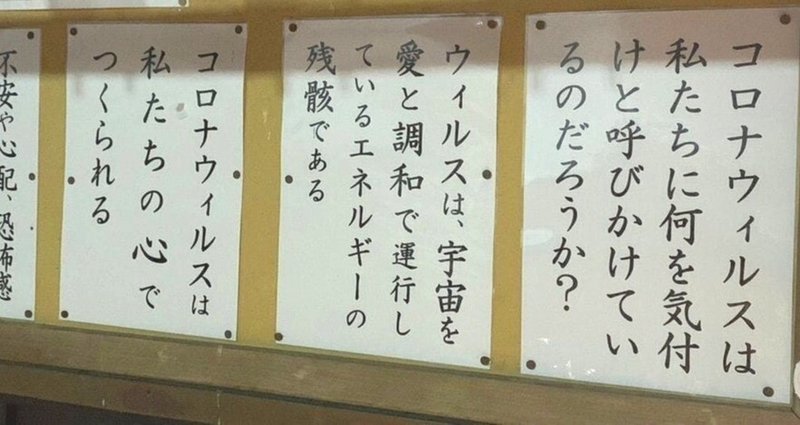 コロナウィルスは
私たちに何を気付
けと呼びかけてい
るのだろうか?
ウィルスは、宇宙を
愛と調和で運行し
ているエネルギーの
残骸である
コロナウィルスは
私たちの心で
つくられる
不安や心配、恐怖感